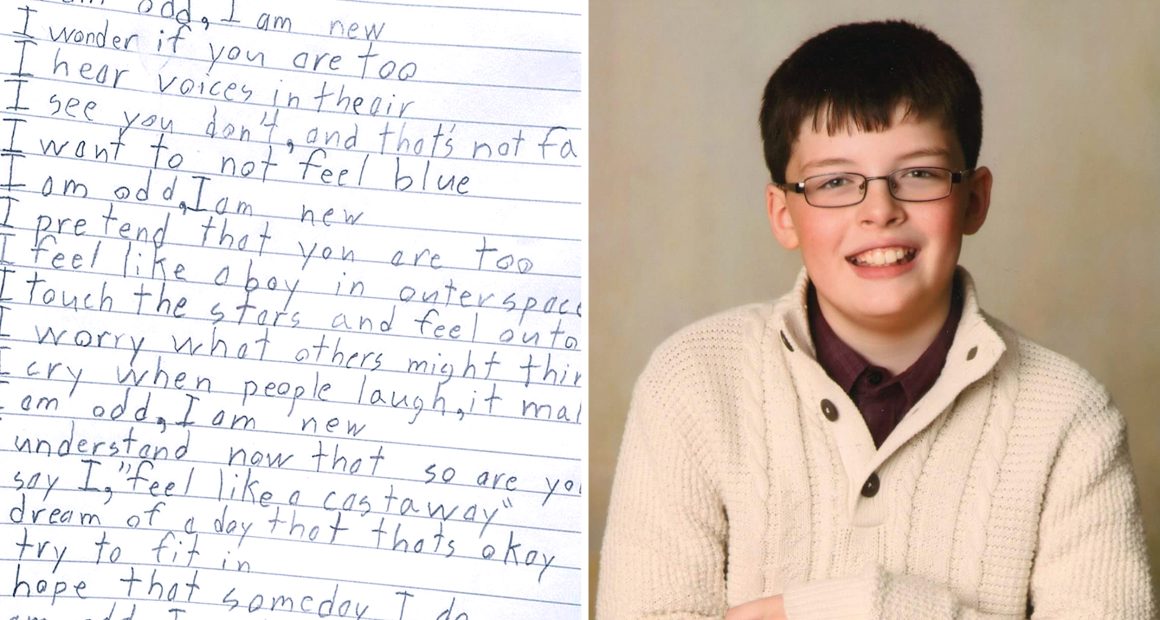 odd, I am new
I wonder if you are too
I hear voices in the air
I see you don't, and that's not fa
I want to not feel blue
I am odd, I am new
I pretend that you are too
I feel like a boy in outerspace
I touch the stars and feel out o
I worry what others might thin
I cry when people laugh, it mak
am odd, I am new
understand now that so are you
say I, "feel like a castaway"
dream of a day that thats okay
try to fit in
hope that someday I do
am odd, I